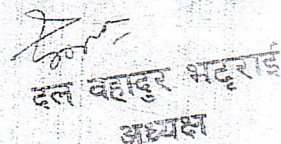 दल वहादुर भट्टराई
अध्यक्ष